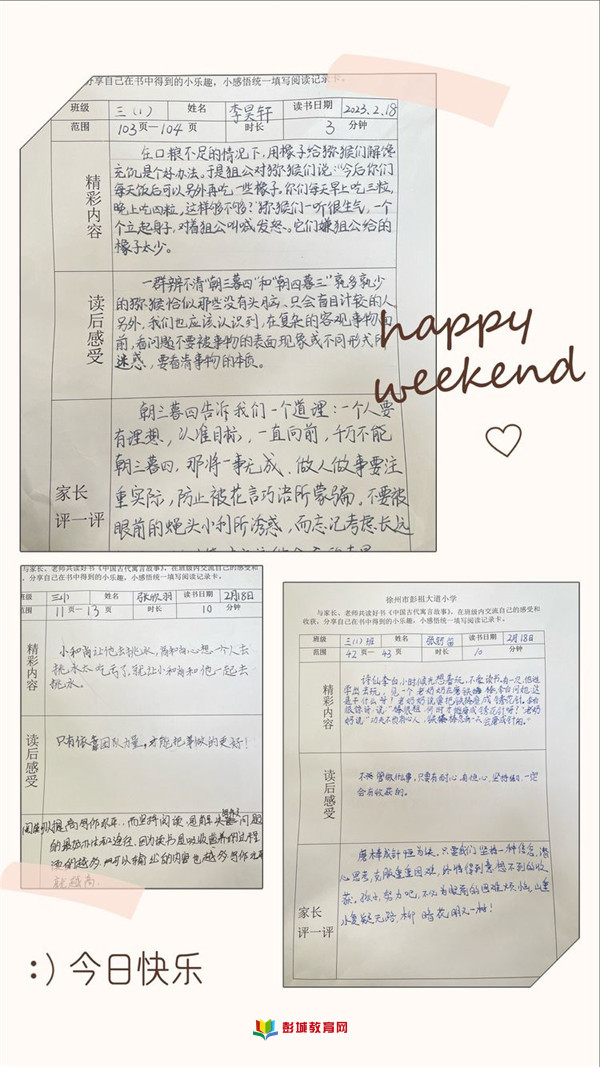 分享自己在书中得到的小乐趣,小感悟统一填写阅读记录卡。
班级 三(1) 姓名 李昊轩 读书日期 2023.2.18
范围 103页—104页 时长 3 分钟
精彩内容
在口粮不足的情况下,用橡子给猕猴们解馋
充饥是个好办法。于是狙公对猕猴们说:“今后你们
每天饭后可以另外再吃一些橡子。你们每天早上吃三粒,
晚上吃四粒,这样够不够?”猕猴们一听很生气,一个
个立起身子,对着狙公叫喊发怒。它们嫌狙公给的
橡子太少。
读后感受
一群辨不清“朝三暮四”和“朝四暮三”孰多孰少
的猕猴恰似那些没有头脑、只会盲目计较的人
另外,我们也应该认识到,在复杂的客观事物面
前,看问题不要被事物的表面现象或不同形式所
迷惑,要看清事物的本质。
家长评一评
朝三暮四告诉我们一个道理:一个人要
有理想,认准目标,一直向前,千万不能
朝三暮四,那将一事无成。做人做事要注
重实际,防止被花言巧语所蒙骗,不要被
眼前的蝇头小利所诱惑,而忘记考虑长远
happy
weekend
与家长、老师共读好书《中国古代寓言故事》,在班级内交流自己的感受和
,分享自己在书中得到的小乐趣,小感悟统一填写阅读记录卡。
班级 三(1) 姓名 张欣羽 2月18日
范围 11页—13页 时长 10 分钟
精彩内容
小和尚让他去挑水,高和尚心想一个人去
挑水太吃亏了,就让小和尚和他一起去
挑水。
读后感受
只有依靠团队力量,才能把事做的更好!
就越高
徐州市彭祖大道小学
与家长、老师共读好书《中国古代寓言故事》,在班级内交流自己的感受和
收获,分享自己在书中得到的小乐趣,小感悟统一填写阅读记录卡。
班级 三(1)班 姓名 2月18日
范围 42页—43页 时长 10 分钟
精彩内容
诗仙李白小时候光想着玩,不爱读书,有一次,他逃
学出去玩,见一个老奶奶在磨铁棒,李白问她:这
是干什么呀?老奶奶说要把铁棒磨成绣花针。李白
奶说:“功夫不负有心人,铁棒总有一天会磨成针的。”
读后感受
不管做什么事,只要有耐心,有恒心,坚持练习,一定
会有收获的。
家长评一评
磨棒成针恒为诀,只要我们坚持一种信念,潜
心思考,克服重重困难,必然得到意想不到的收
获。孩子,努力吧,不要为眼前的困难烦恼,山重
水复疑无路,柳暗花明又一村!
:) 今日快乐
彭城教育网